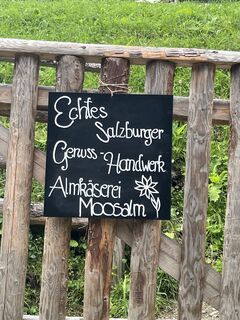 Echtes
Salzburger
Genuss-Handwerk
Almkäserei
Moosalm